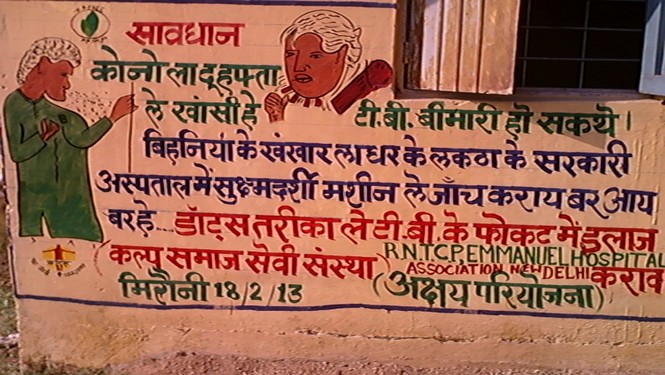 सावधान
कोनो ला दू हफ्ता
ले खांसी हे टी.बी. बीमारी हो सकथे।
बिहनिया के खंखार ला धर के लकठा के सरकारी
अस्पताल में सुक्ष्मदर्शी मशीन ले जाँच कराय बर आय
बर हे... डॉट्स तरीका ले टी.बी. के फोकट में इलाज
कराव
R.N.T.C.P, EMMANUEL HOSPITAL
ASSOCIATION, NEW DELHI
(कल्प समाज सेवी संस्था)
मिरौनी 18/2/13 (अक्षय परियोजना)